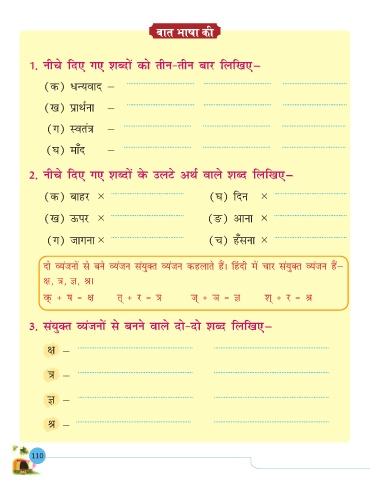 बात भाषा की
1. नीचे दिए गए शब्दों को तीन-तीन बार लिखिए–
(क) धन्यवाद –
(ख) प्रार्थना –
(ग) स्वतंत्र –
(घ) माँद –
2. नीचे दिए गए शब्दों के उलटे अर्थ वाले शब्द लिखिए–
(क) बाहर × (घ) दिन ×
(ख) ऊपर × (ङ) आना ×
(ग) जागना × (च) हँसना ×
दो व्यंजनों से बने व्यंजन संयुक्त व्यंजन कहलाते हैं। हिंदी में चार संयुक्त व्यंजन हैं–
क्ष, त्र, ज्ञ, श्र।
क् + ष = क्ष त् + र = त्र ज् + ञ = ज्ञ श् + र = श्र
3. संयुक्त व्यंजनों से बनने वाले दो-दो शब्द लिखिए–
क्ष –
त्र –
ज्ञ –
श्र –
110